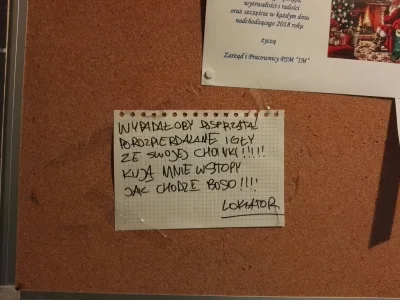 wytrwałości i radości
oraz szczęścia w każdym dniu
nadchodzącego 2018 roku
życzą
Zarząd i Pracownicy PSM "IM"
WYPADAŁOBY POSPRZĄTAĆ
POROZPIERDALANE IGŁY
ZE SWOJEJ CHOINKI!!!!!
KUJĄ MNIE W STOPY
JAK CHODZE BOSO!!!!
LOKATOR